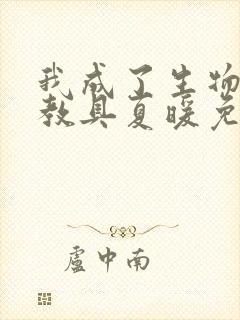 我成了生物
教具夏暖免
卢中南